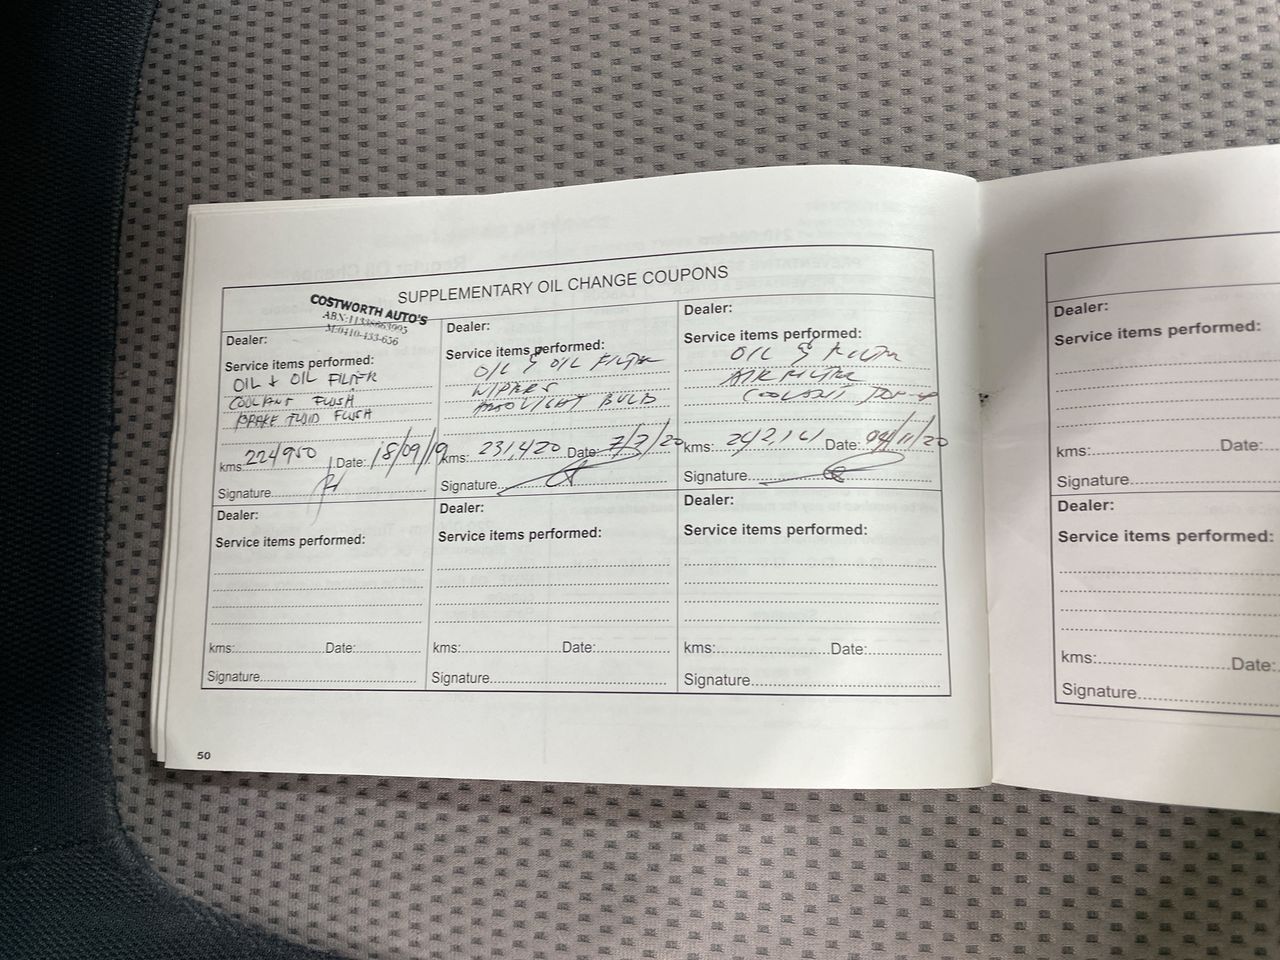 SUPPLEMENTARY OIL CHANGE COUPONS
COSTWORTH AUTO'S
ABN:11338663905
M:0410-433-656
Dealer:
Service items performed:
OIL & OIL FILTER
COOLANT FLUSH
BRAKE FLUID FLUSH
kms: 224950 Date: 18/09/19
Signature
Dealer:
Service items performed:
OIL & OIL FILTER
WIPERS
BULB
kms: 231,420 Date: 7/2/20
Signature
Dealer:
Service items performed:
OIL & FILTER
AIR FILTER
COOLANT
kms: 242,161 Date: 04/11/20
Signature
Dealer:
Service items performed:
kms: Date:
Signature
Dealer:
Service items performed:
kms: Date:
Signature
Dealer:
Service items performed:
kms: Date:
Signature
50
Dealer:
Service items performed:
kms: Date:
Signature
Dealer:
Service items performed:
kms: Date:
Signature